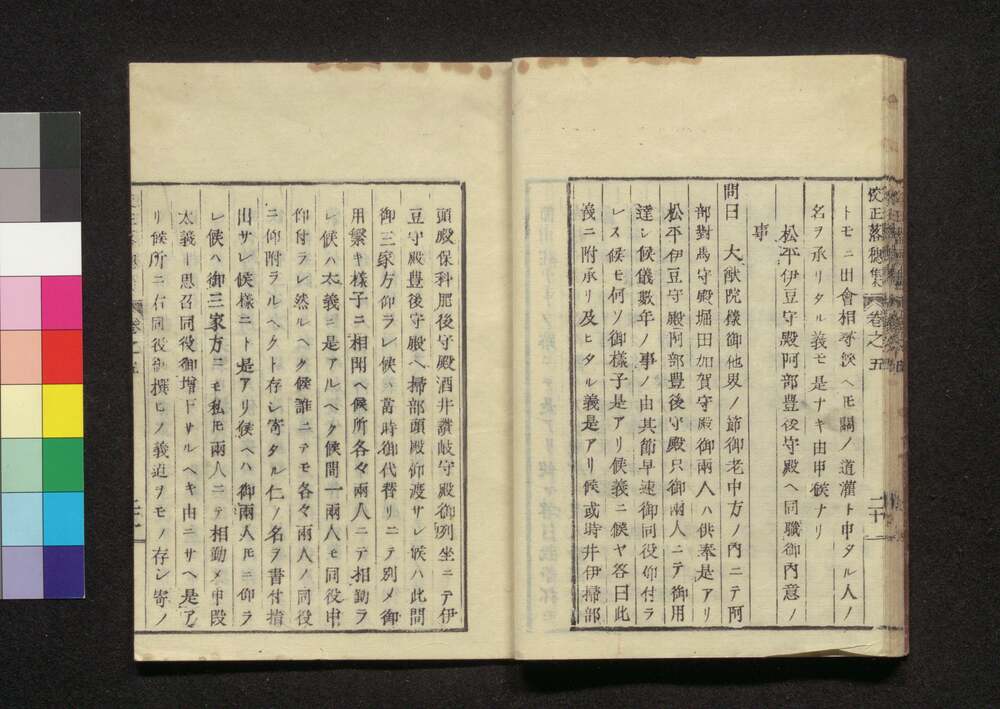 校正落穂集 巻之五 二十
トモニ出會相尋候ヘモ關ノ道灌ト申タル人ノ
名ヲ承リタル義モ是ナキ由申候ナリ
松平伊豆守殿阿部豊後守殿ヘ同職御内意ノ
事
問曰 大猷院様御他界ノ節御老中方ノ内ニテ阿
部對馬守殿堀田加賀守殿御兩人ハ供奉是アリ
松平伊豆守殿阿部豊後守殿只御兩人ニテ御用
達シ候儀數年ノ事ノ由其節早速御同役仰付ラ
レス候モ何ソ御様子是アリ候義ニ候ヤ答曰此
義ニ附承リ及ヒタル義是アリ候或時井伊掃部
頭殿保科肥後守殿酒井讃岐守殿御列坐ニテ伊
豆守殿豊後守殿ヘ掃部頭殿仰渡サレ候ハ此間
御三家方仰ラレ候ハ當時御代替リニテ別メ御
用繁キ様子ニ相聞ヘ候所各々兩人ニテ相勤ラ
レ候ハ太義ニ是アルヘク候間一兩人モ同役申
仰付ラレ然ルヘク候誰ニテモ各々兩人ノ同役
ニ仰附ラルヘクト存シ寄タル仁ノ名ヲ書付指
出サレ候様ニト是アリ候ヘハ御兩人モ仰ラ
レ候ハ御三家方ニモ私モ兩人ニテ相勤メ申段
太義ト思召同役御増下サルヘキ由ニサヘ是ア
リ候所ニ右同役御撰ヒノ義迫ヲモノ存シ寄ノ